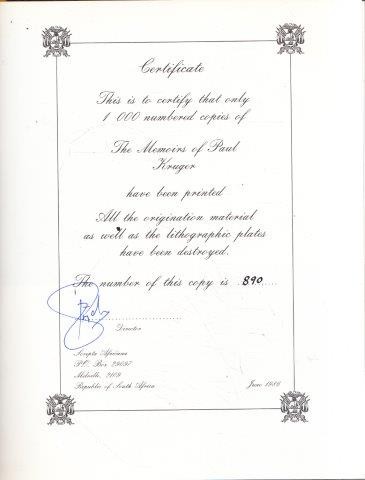 Certificate
This is to certify that only
1 000 numbered copies of
The Memoirs of Paul
Kruger
have been printed
All the origination material
as well as the lithographic plates
have been destroyed.
The number of this copy is 890
Director
Scripta Africana
P.O. Box 29097
Melville, 2109
Republic of South Africa
June 1986